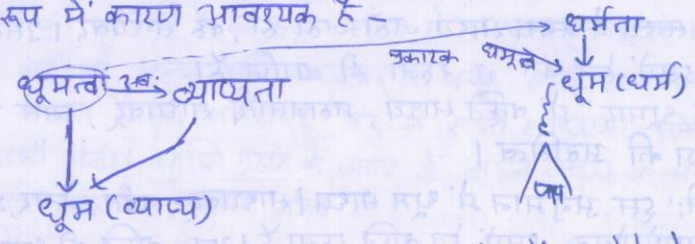 रूप में कारण आवश्यक है -
धर्मता
प्रकारक धूमत्वे
धूमत्व अव. व्याप्यता
धूम (धर्म)
धूम (व्याप्य)